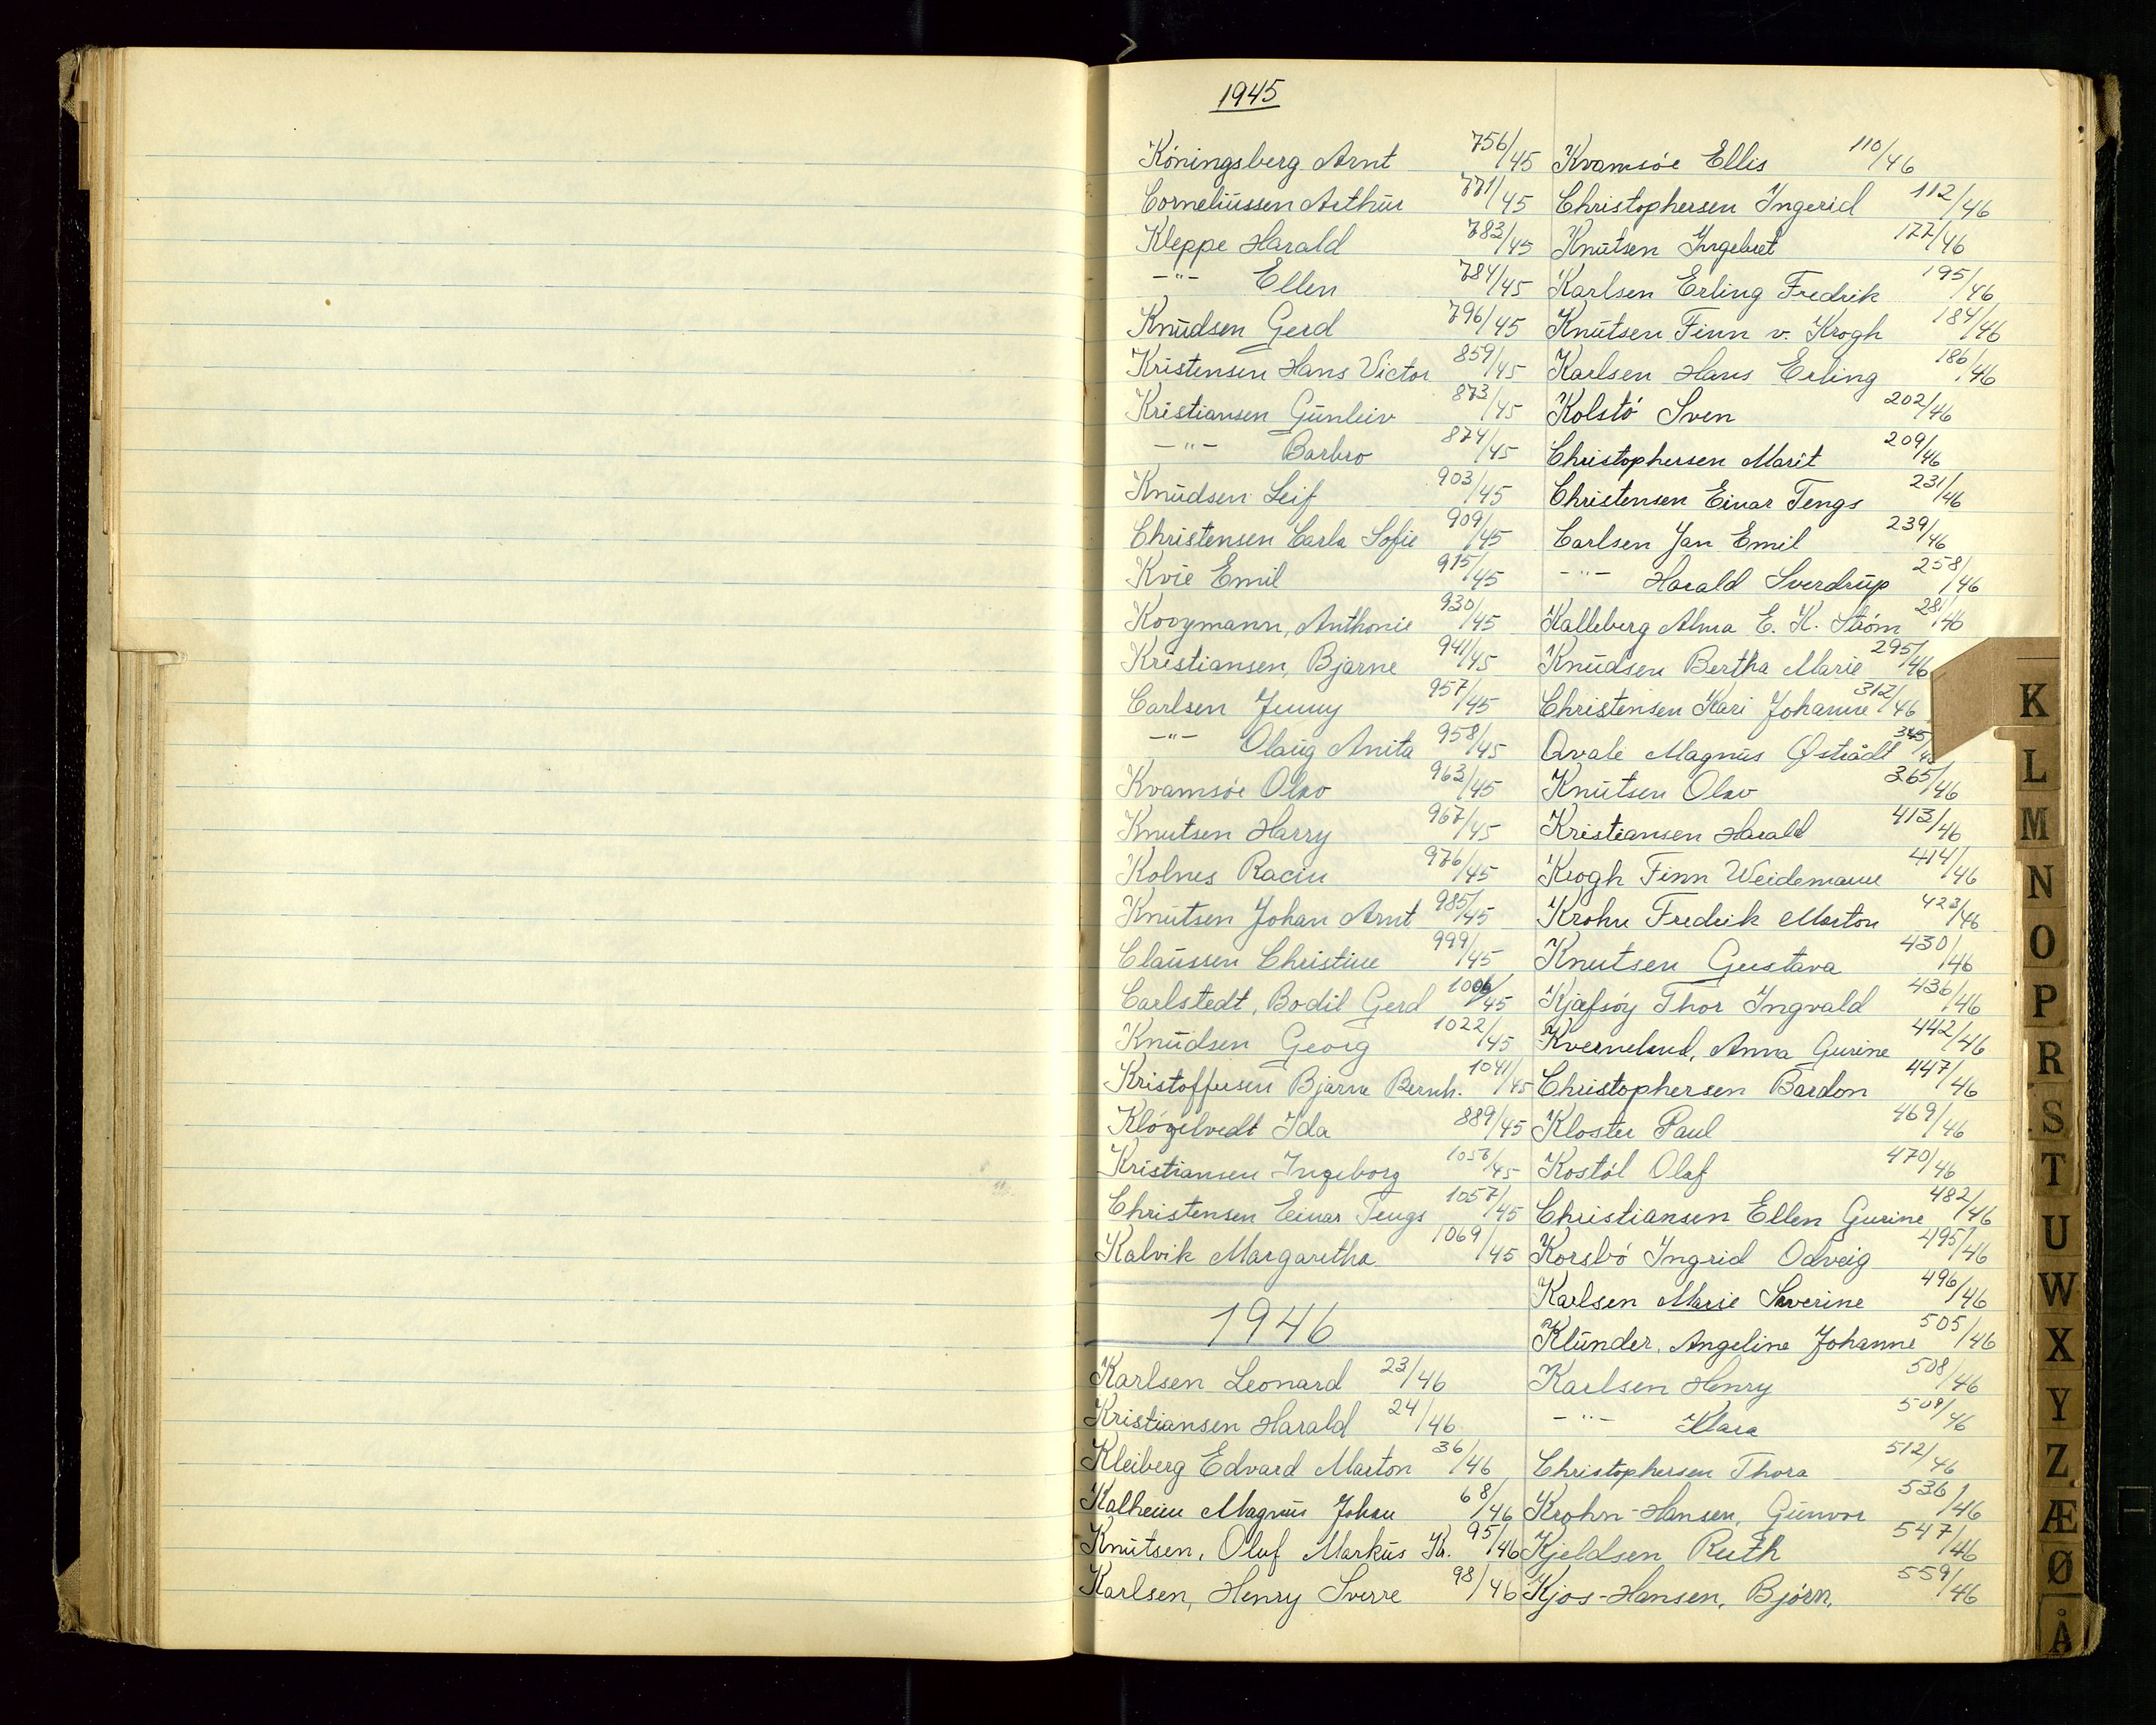 1945
Köningsberg Arnt 756/45
Corneliussen Arthur 771/45
Kleppe Harald 783/45
-"- Ellen 784/45
Knudsen Gerd 796/45
Kristensen Hans Victor 859/45
Kristiansen Gunleiv 873/45
-"- Barbro 874/45
Knudsen Leif 903/45
Christensen Carla Sofie 909/45
Kvie Emil 915/45
Kooymann, Anthonie 930/45
Kristiansen, Bjarne 941/45
Carlsen Jenny 957/45
-"- Olaug Anita 958/45
Kvamsöe Olav 963/45
Knutsen Harry 967/45
Kolnes Racin 976/45
Knutsen Johan Arnt 985/45
Claussen Christine 999/45
Carlstedt, Bodil Gerd 1006/45
Knudsen Georg 1022/45
Kristoffersen Bjarne Bernh. 1041/45
Klözelvedt Ida 889/45
Kristiansen Ingeborg 1056/45
Christensen Einar Tengs 1057/45
Kalvik Margaretha 1069/45
1946
Karlsen Leonard 23/46
Kristiansen Harald 24/46
Kleiberg Edvard Marton 36/46
Kalheim Magnus Johan 68/46
Knutsen, Oluf Markus Kr. 95/46
Karlsen, Henry Sverre 98/46
Kvamsöe Ellis 110/46
Christophersen Ingerid 112/46
Knutsen Ingebret 177/46
Karlsen Erling Fredrik 195/46
Knutsen Finn v. Krogh 184/46
Karlsen Hans Erling 186/46
Kolstö Sven 202/46
Christophersen Marit 209/46
Christensen Einar Tengs 231/46
Carlsen Jan Emil 239/46
-"- Harald Sverdrup 258/46
Kalleberg Alma E. K. Ström 281/46
Knudsen Bertha Marie 295/46
Christensen Kari Johanne 312/46
Qvale Magnus Østrådt 345/4
Knutsen Olav 365/46
Kristiansen Harald 413/46
Krogh Finn Weidemann 414/46
Krohn Fredrik Marton 423/46
Knutsen Gustava 430/46
Kjæfsöy Thor Ingvald 436/46
Kverneland, Anna Gurine 442/46
Christophersen Bardon 447/46
Kloster Paul 469/46
Kostöl Olaf 470/46
Christiansen Ellen Gurine 482/46
Korsbö Ingrid Odveig 495/46
Karlsen Marie Severine 496/46
Klunder, Angeline Johanne 505/46
Karlsen Henry 508/46
-"- Klara 509/46
Christophersen Thora 512/46
Krohn-Hansen, Gunvor 536/46
Kjeldsen Ruth 547/46
Kjos-Hansen, Björn, 559/46
K
L
M
N
O
P
R
S
T
U
W
X
Y
Z
Æ
Ø
Å